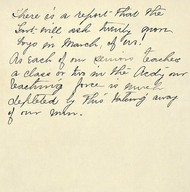 There is a report that the
Gov't will ask twenty more
boys in March, of us.
As each of our seniors teaches
a class or two in the Acdy our
teaching force is much
depleted by this taking away
of our men.